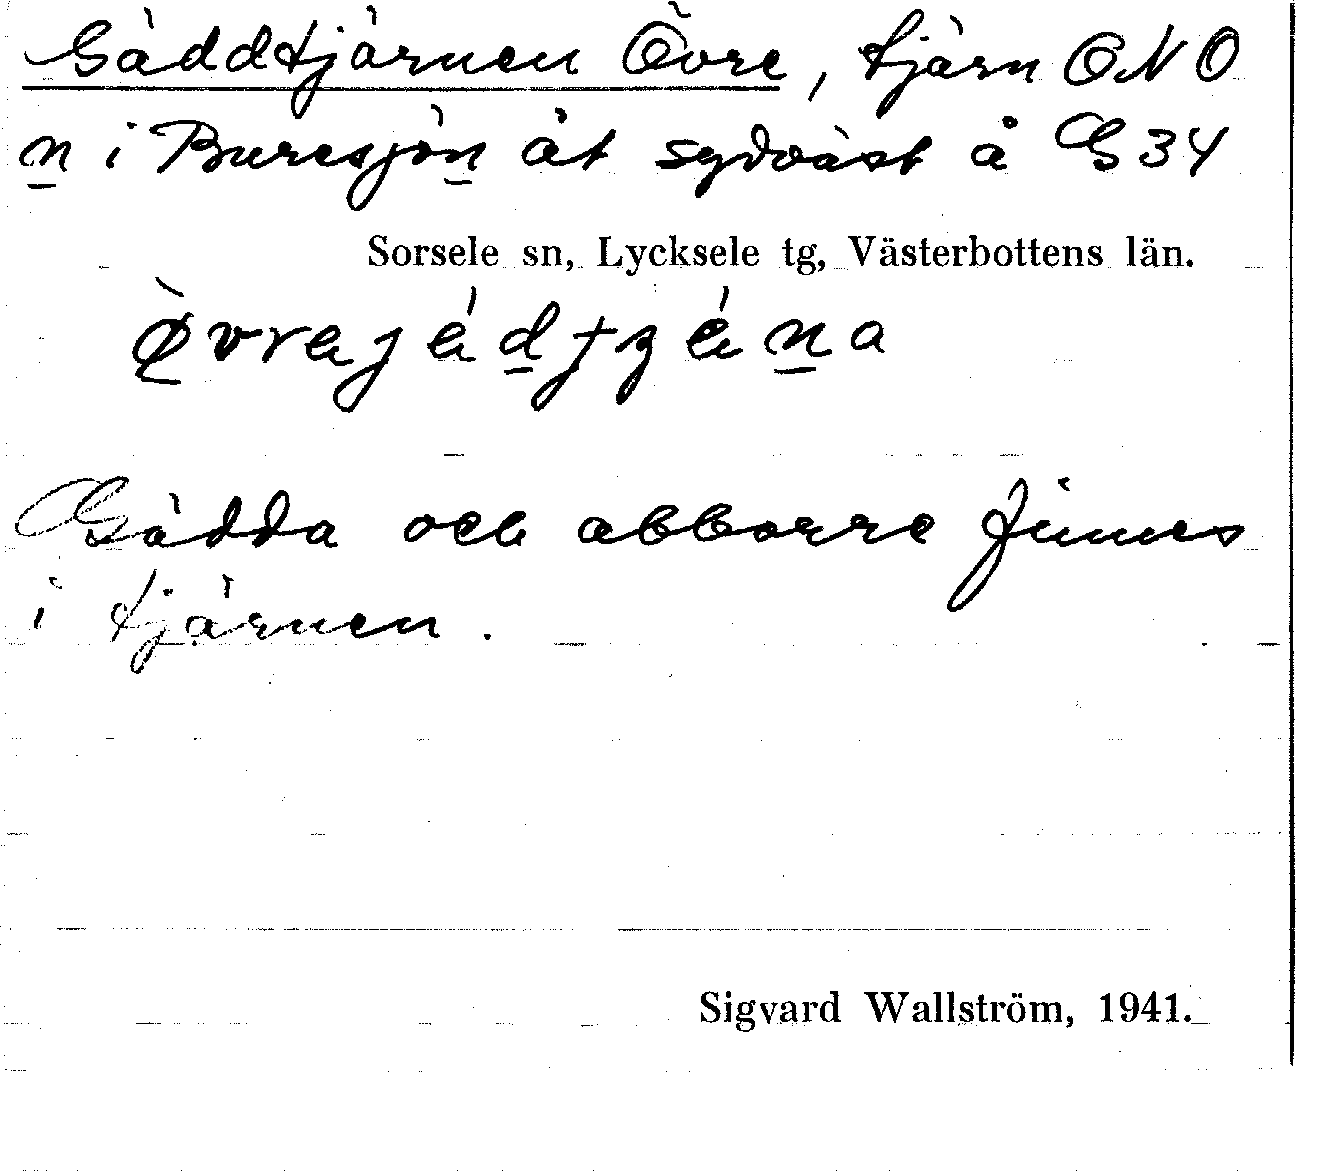 Gäddtjärnen Övre, tjärn ONO
n i Buresjön åt sydväst å G 34
Sorsele sn, Lycksele tg, Västerbottens län.
Gädda och abborre finnes
i tjärnen.
Sigvard Wallström, 1941.